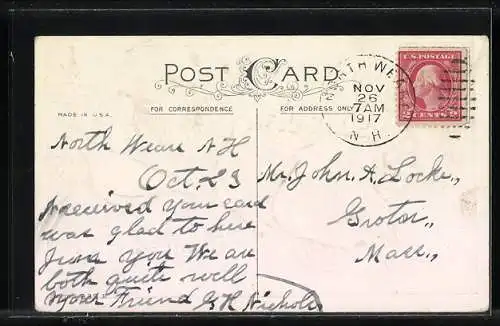 POST CARD
MADE IN U.S.A.
FOR CORRESPONDENCE
FOR ADDRESS ONLY
NORTH WEARE
NOV
26
7 AM
1917
N.H.
U.S. POSTAGE
2 CENTS 2
North Weare N H
Oct 23
Received your card
was glad to hear
from you We are
both quite well
your Friend G H Nichols
Mr. John. A. Locke,,
Groton,
Mass,,